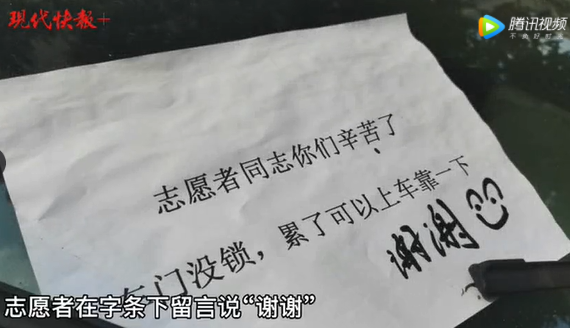 现代快报+
腾讯视频
不负好时光
志愿者同志你们辛苦了
车门没锁，累了可以上车靠一下
谢谢
志愿者在字条下留言说“谢谢”